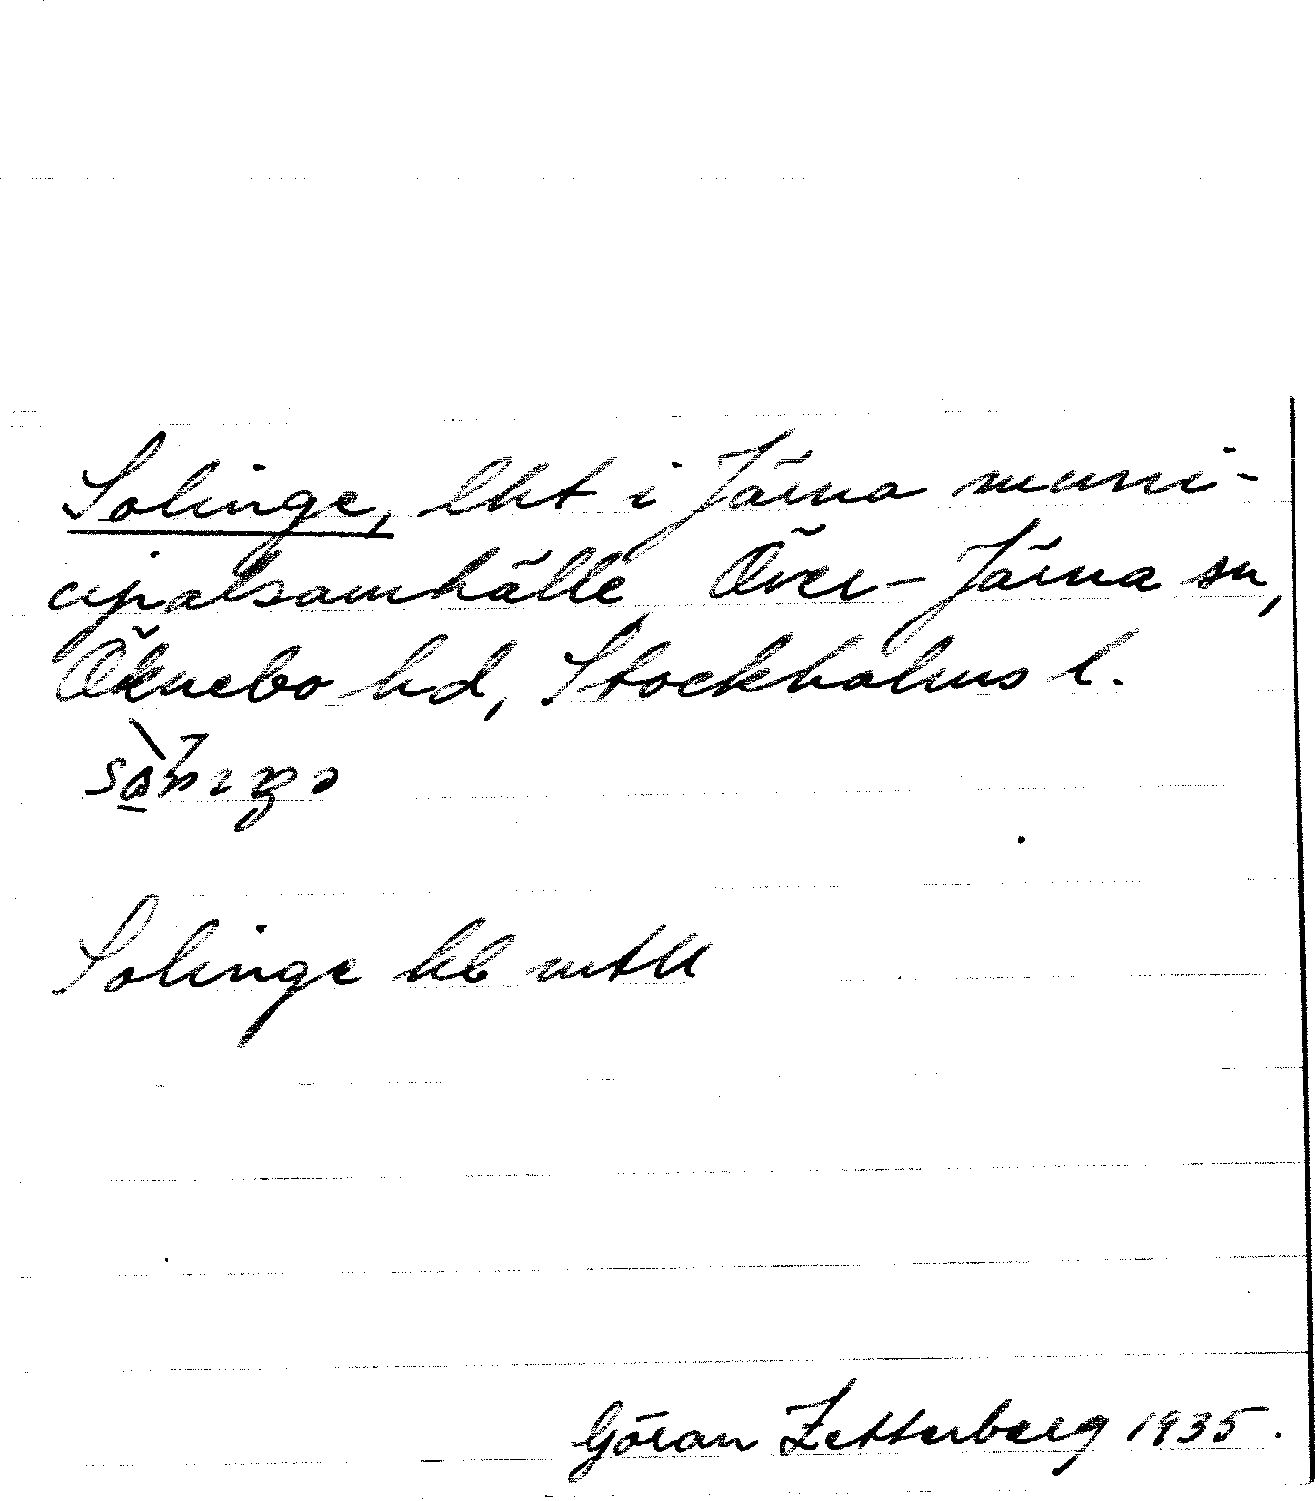 Solinge, lht i Järna muni-
cipalsamhälle Över-Järna sn,
Öknebo hd, Stockholms l.
Solinge hb mtll
Göran Zetterberg 1935.